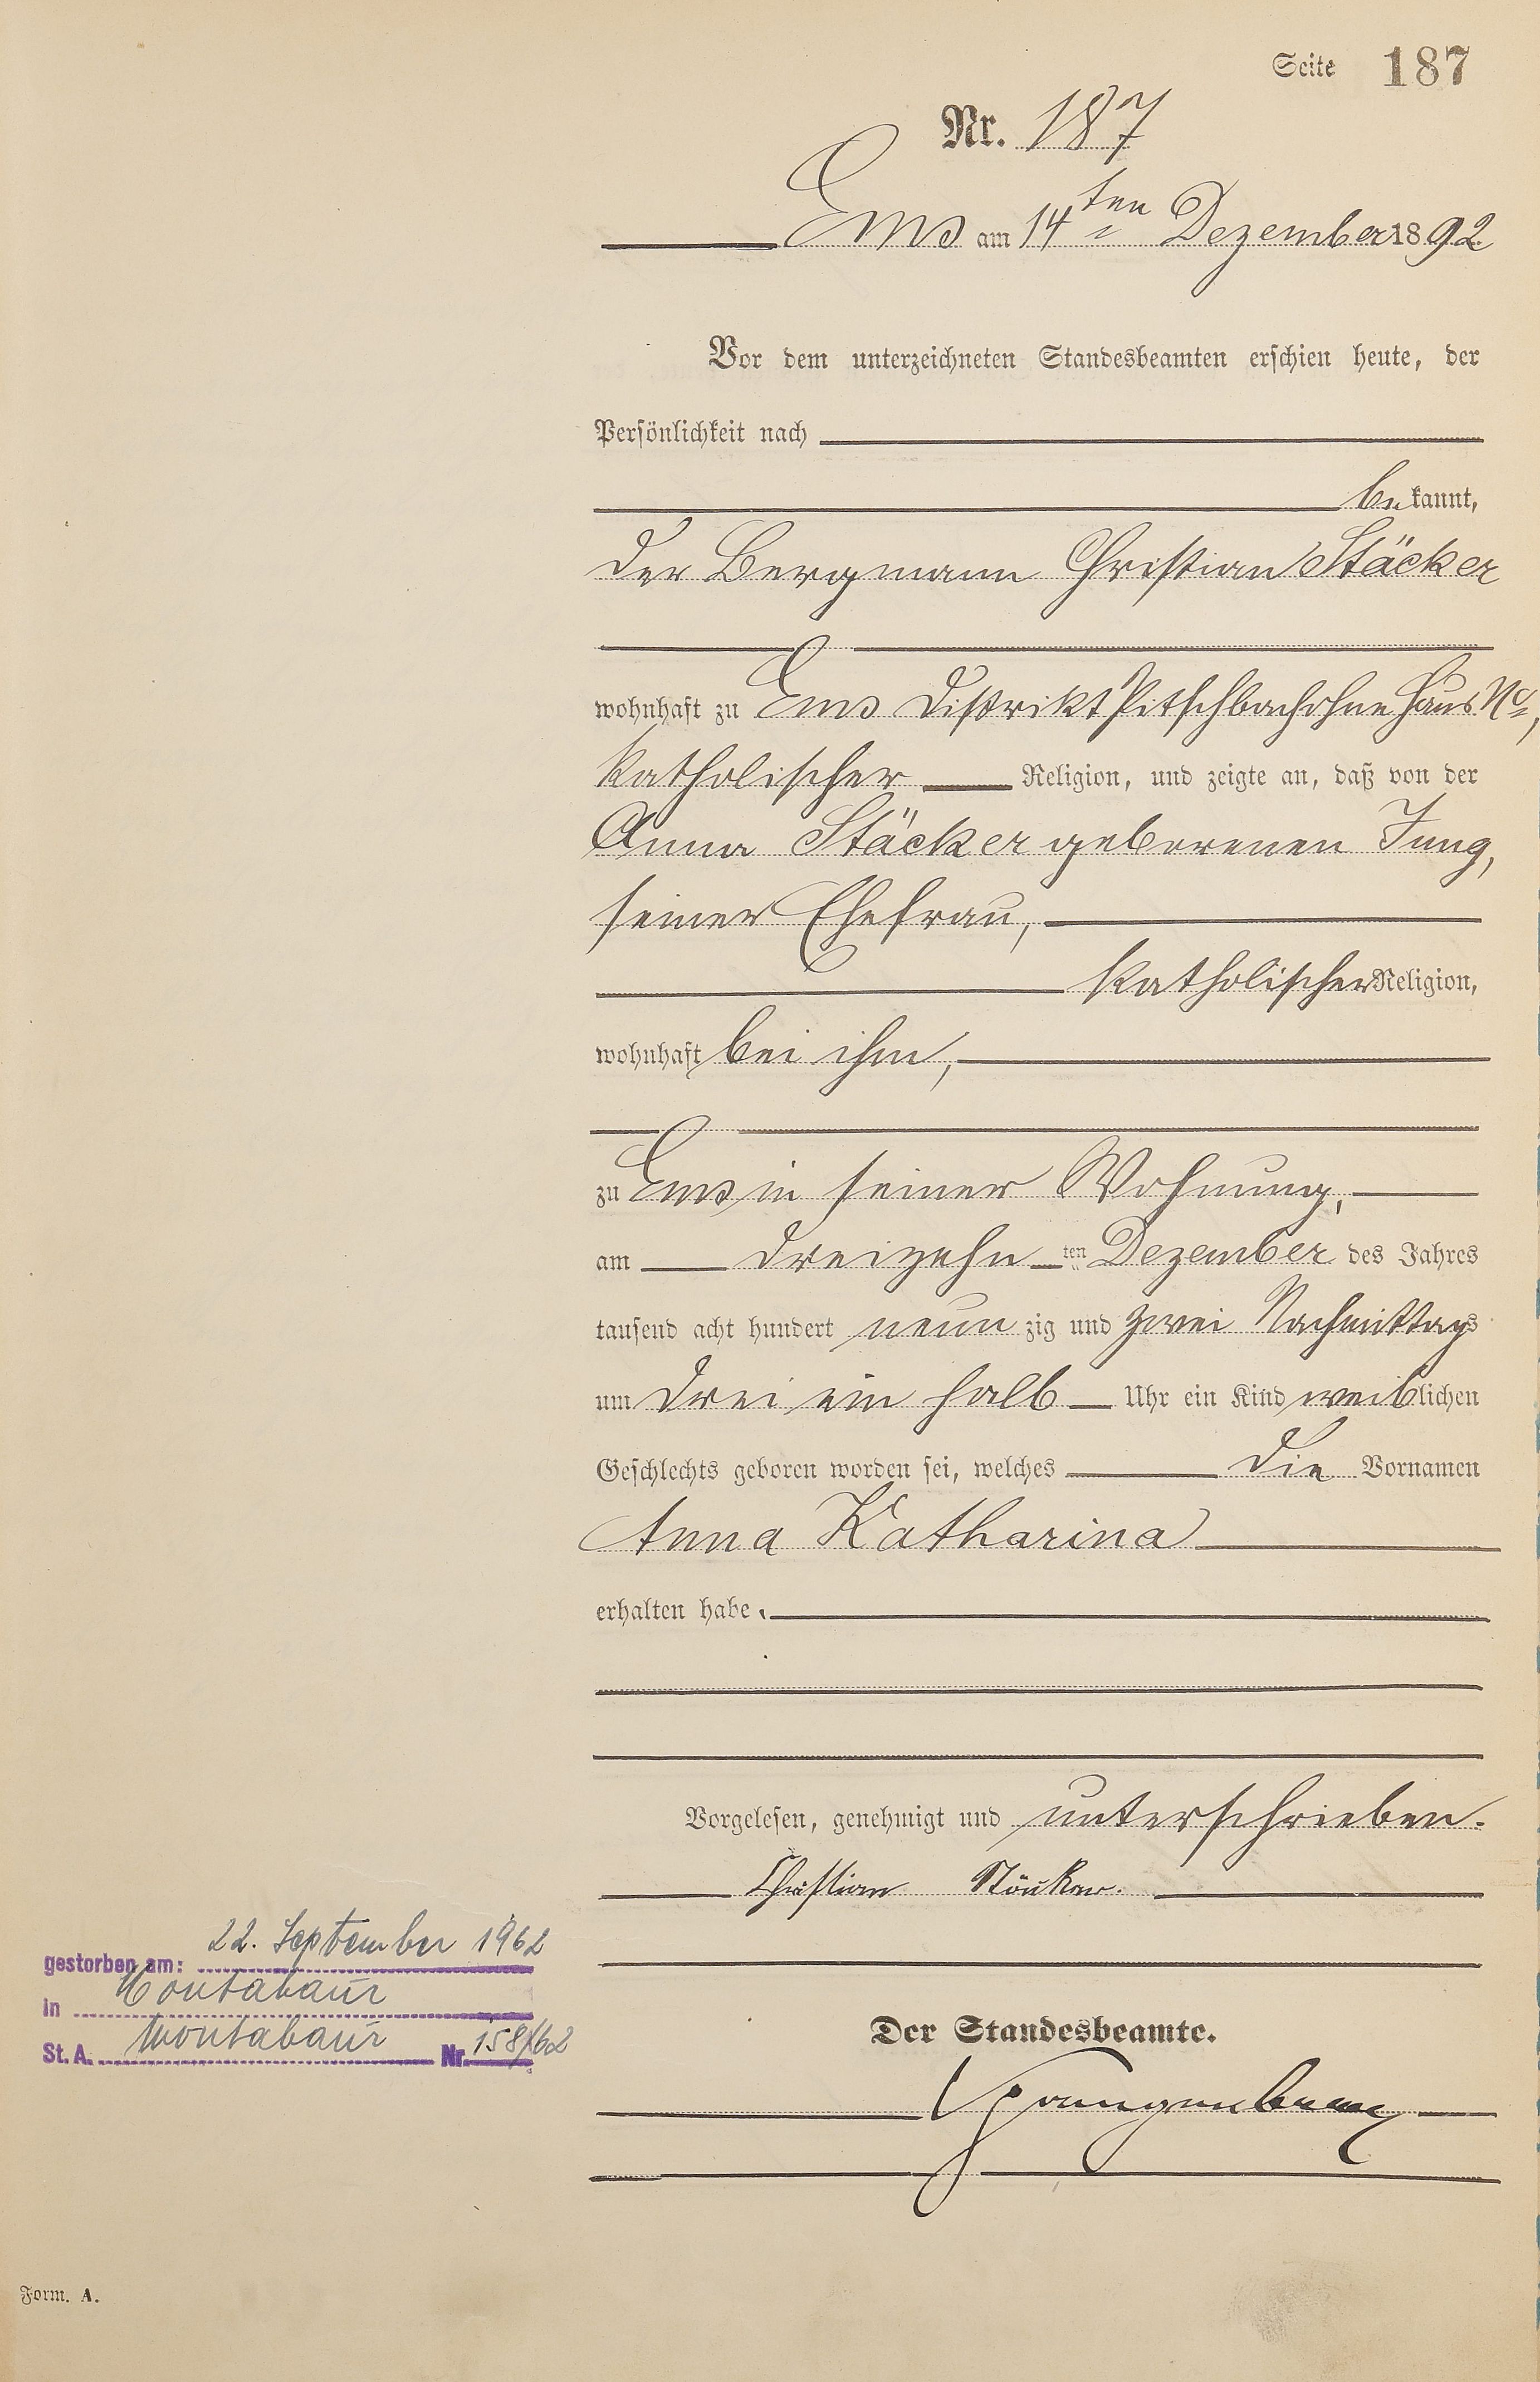 Seite 187
Nr. 187
Ems am 14ten Dezember 1892
Vor dem unterzeichneten Standesbeamten erschien heute, der
Persönlichkeit nach
bekannt,
der Bergmann Christian Stäcker
wohnhaft zu Ems Distrikt Pitschbach ohne Haus No,
katholischer Religion, und zeigte an, daß von der
Anna Stäcker geborenen Jung,
seiner Ehefrau,
katholischer Religion,
wohnhaft bei ihm,
zu Ems in seiner Wohnung,
am dreizehnten Dezember des Jahres
tausend acht hundert neunzig und zwei Nachmittags
um drei ein halb Uhr ein Kind weiblichen
Geschlechts geboren worden sei, welches die Vornamen
Anna Katharina
erhalten habe.
Vorgelesen, genehmigt und unterschrieben.
Christian Stäcker.
Der Standesbeamte.
gestorben am: 22. September 1962
in Montabaur
St. A. Montabaur Nr. 158/62
Form. A.